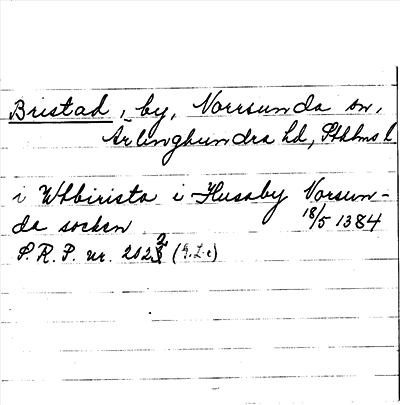 Bristad, by, Norrsunda sn,
Ärlinghundra hd, Sthlms l.
i Wtbirista i Husaby Norsun-
da socken 18/5 1384
S. R. P. nr. 2022